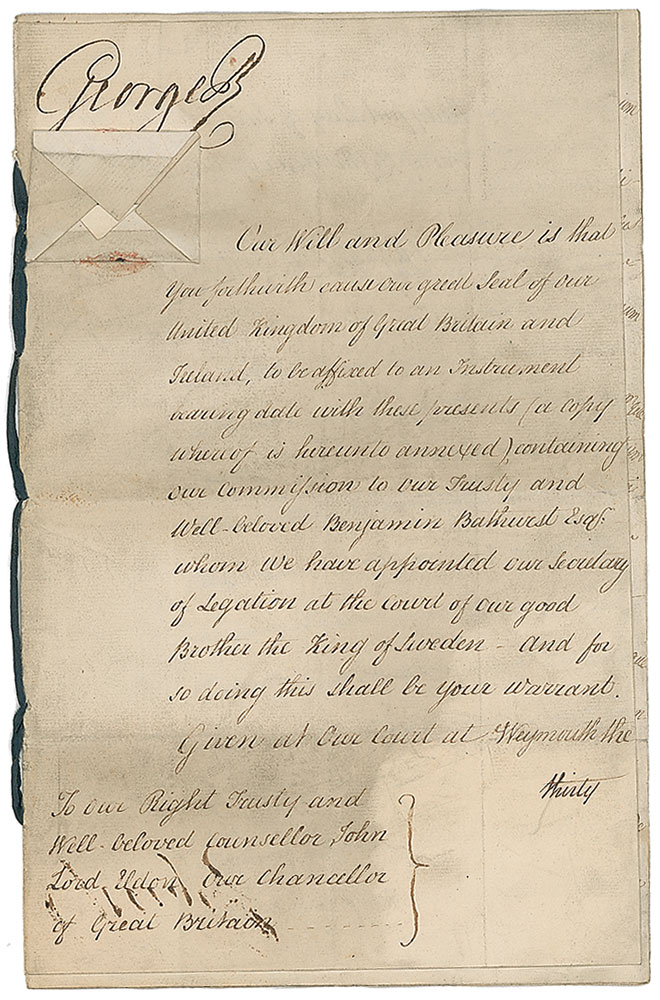 George R
Our Will and Pleasure is that
You forthwith cause our great Seal of our
United Kingdom of Great Britain and
Ireland, to be affixed to an Instrument
bearing date with these presents (a copy
whereof is hereunto annexed) containing
our Commission to our Trusty and
Well-beloved Benjamin Bathurst Esqr:
whom We have appointed our Secretary
of Legation at the Court of our good
Brother the King of Sweden - And for
so doing this shall be your Warrant.
Given at Our Court at Weymouth the
thirty
To our Right Trusty and
Well-beloved Counsellor John
Lord Eldon, Our Chancellor
of Great Britain